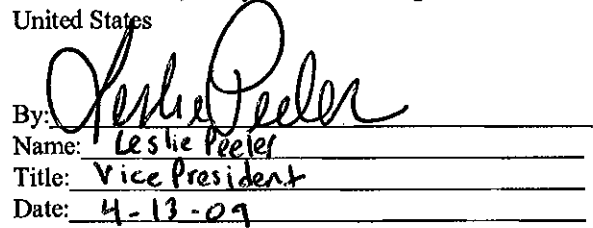 United States
By: Leslie Peeler
Name: Leslie Peeler
Title: Vice President
Date: 4-13-09